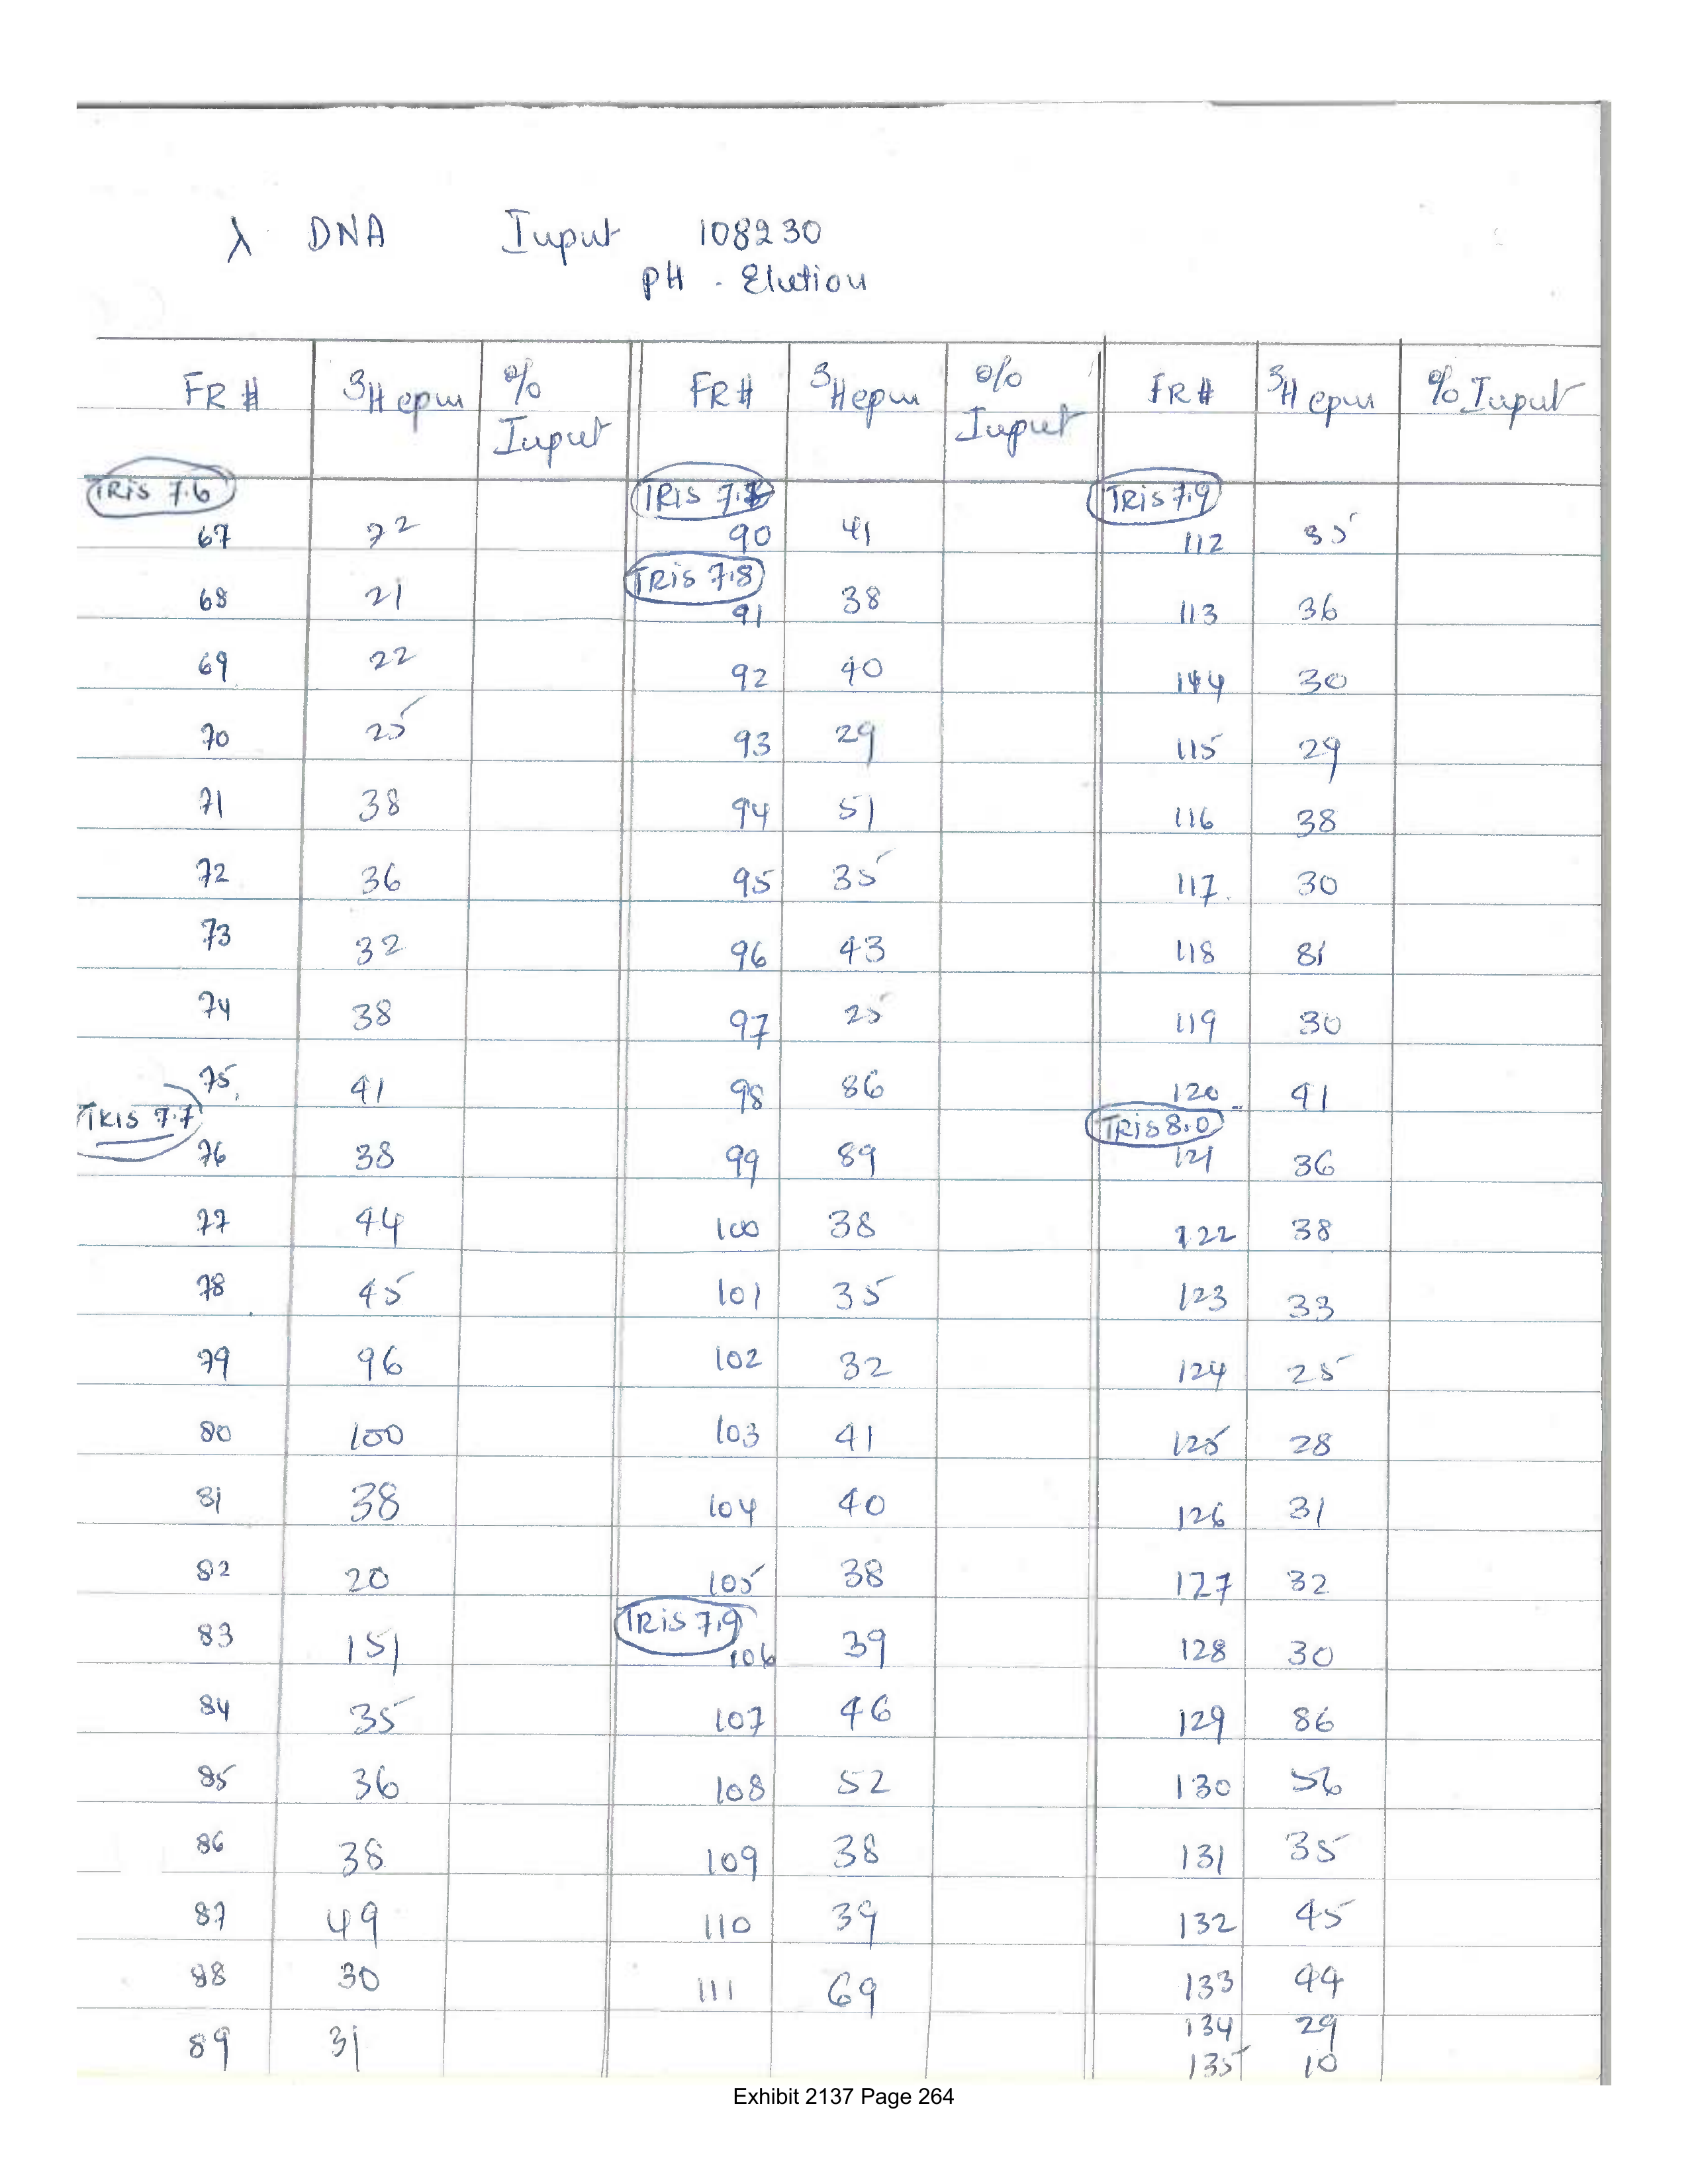 λ DNA Input 108230
pH - Elution
FR # ³H cpm % Input FR # ³H cpm % Input FR # ³H cpm % Input
TRis 7.6 TRis 7. TRis 7.9
67 22 90 41 112 35
TRis 7.8
68 21 91 38 113 36
69 22 92 40 114 30
70 25 93 29 115 29
71 38 94 51 116 38
72 36 95 35 117. 30
73 32 96 43 118 81
74 38 97 25 119 30
75 41 98 86 120 41
TRIS 7.7 TRis 8.0
76 38 99 89 121 36
77 44 100 38 122 38
78 45 101 35 123 33
79 96 102 32 124 25
80 100 103 41 125 28
81 38 104 40 126 31
82 20 105 38 127 32
TRis 7.9
83 151 106 39 128 30
84 35 107 46 129 86
85 36 108 52 130 56
86 38 109 38 131 35
87 49 110 39 132 45
88 30 111 69 133 44
134 29
89 31 135 10
Exhibit 2137 Page 264